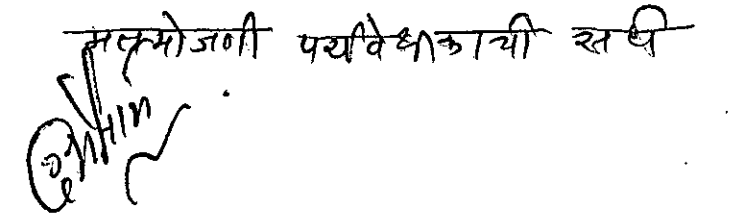 मतमोजणी पर्यवेक्षकाची सही